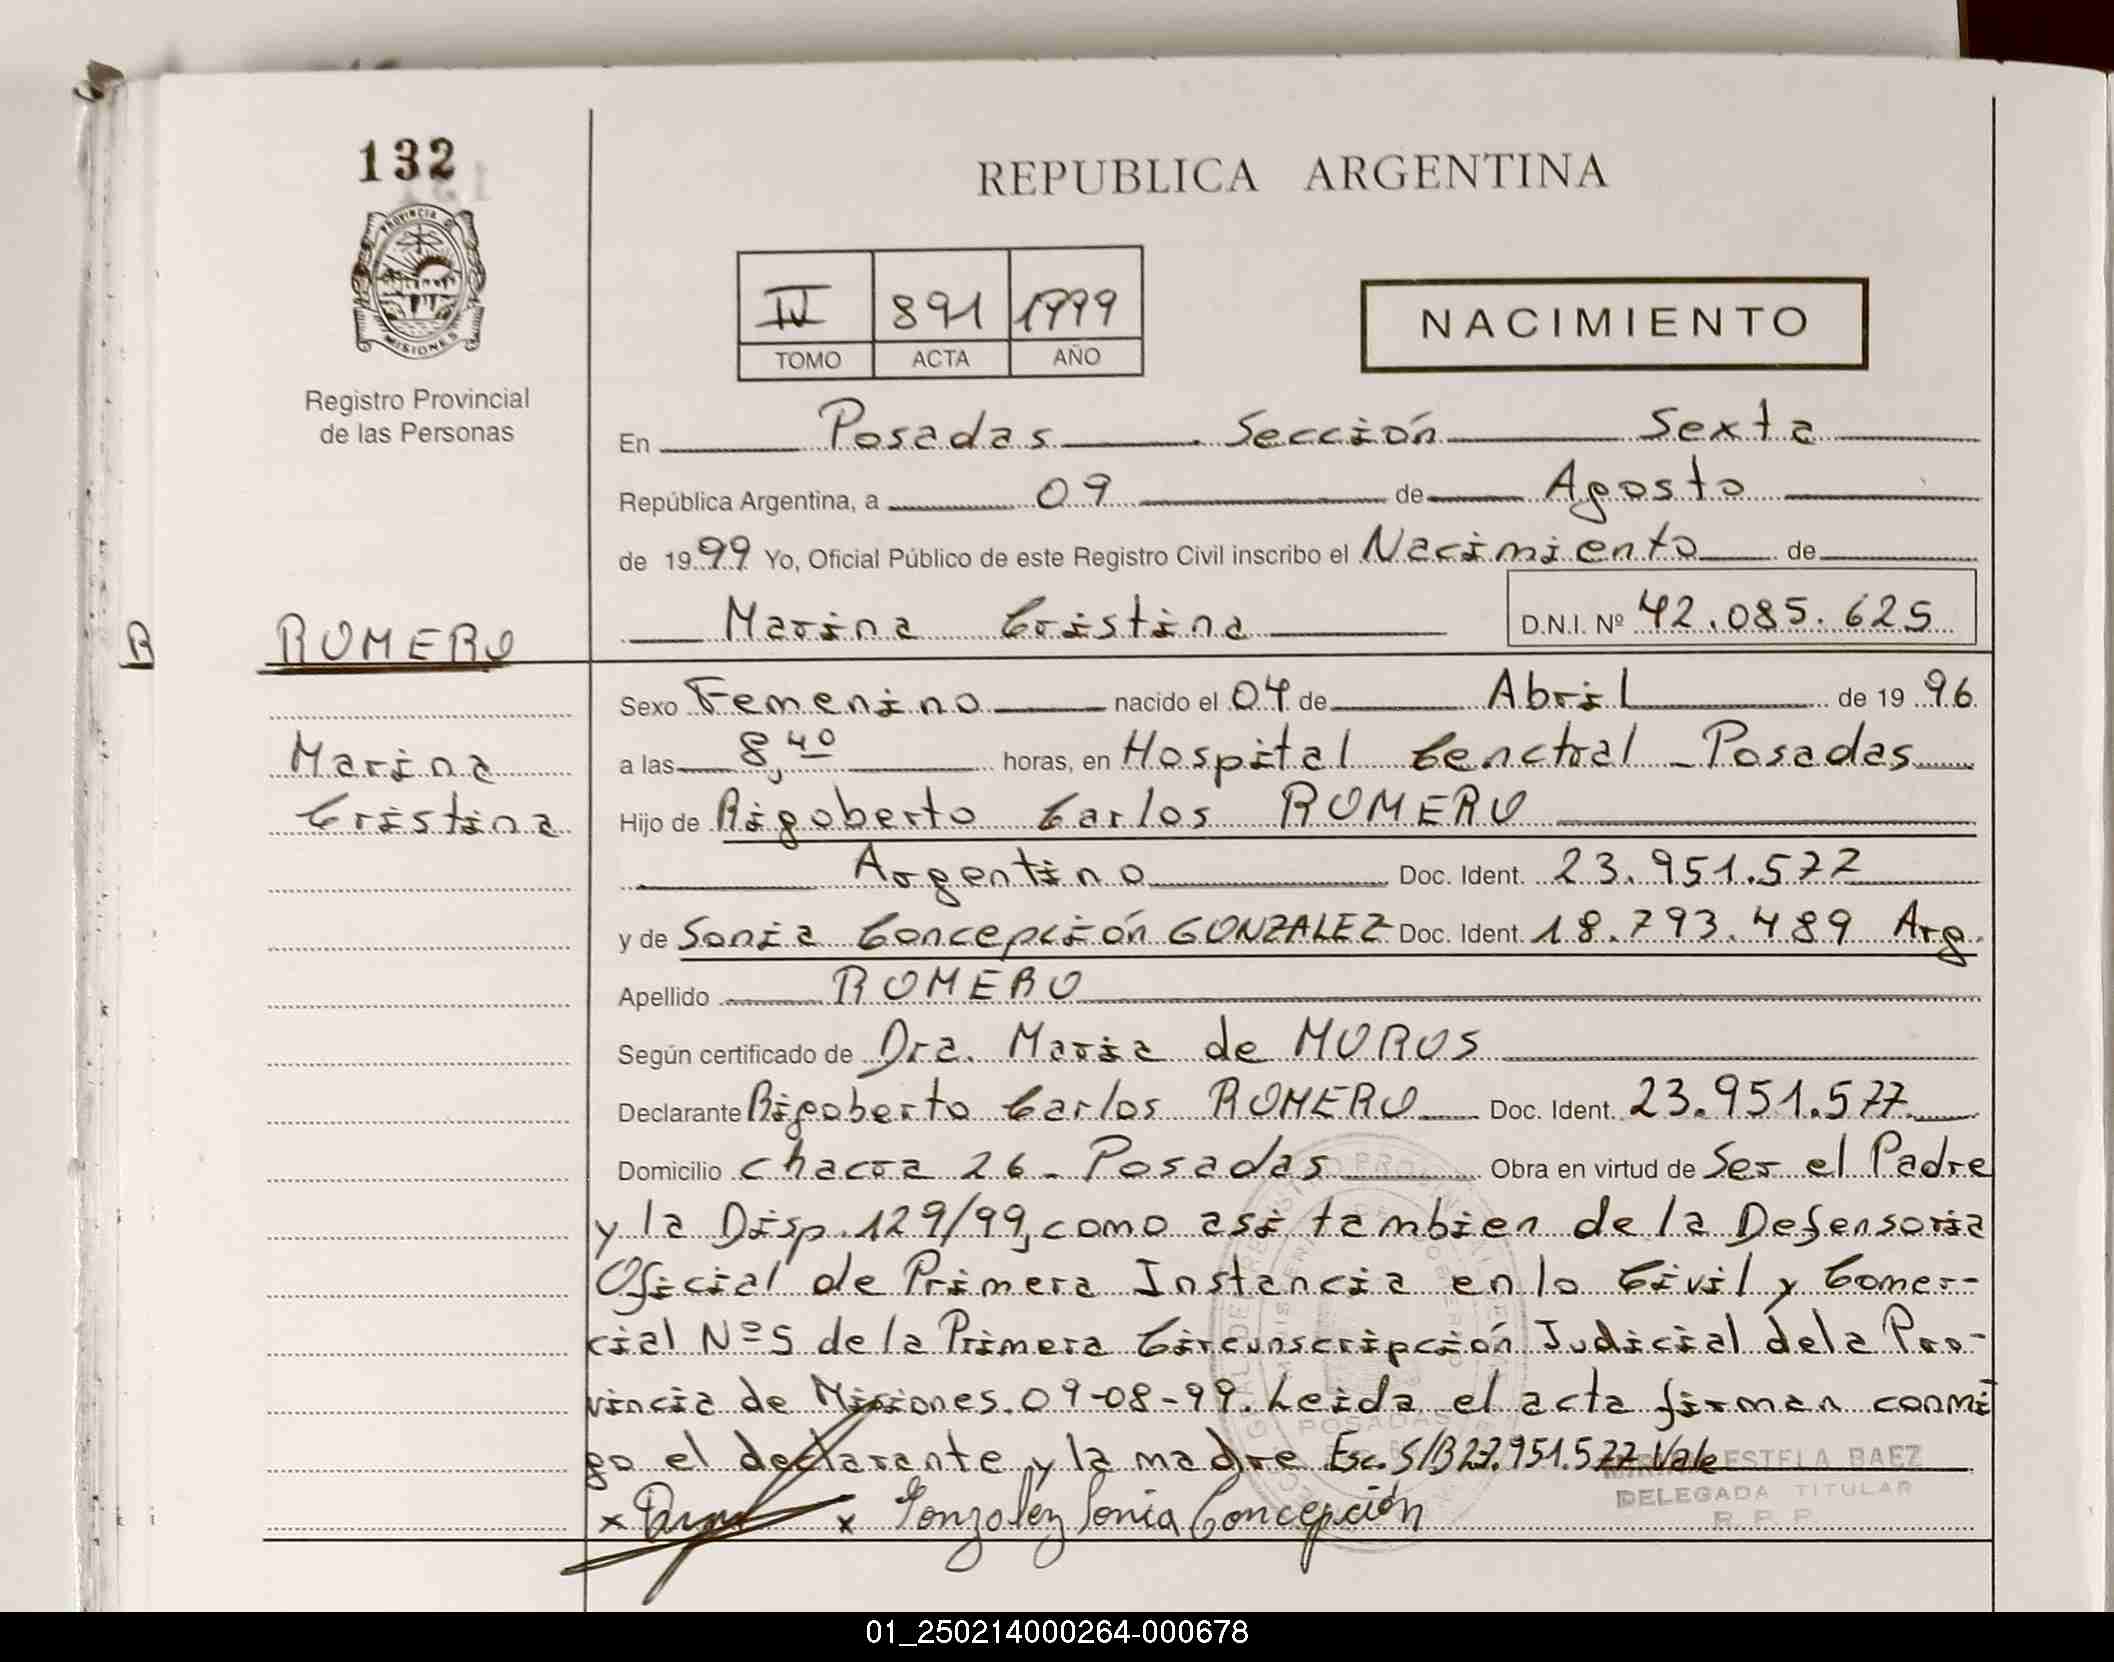 132
PROVINCIA D
MISIONES
Registro Provincial
de las Personas
REPUBLICA ARGENTINA
IV 891 1999
TOMO ACTA AÑO
NACIMIENTO
En Posadas Sección Sexta
República Argentina, a 09 de Agosto
de 1999 Yo, Oficial Público de este Registro Civil inscribo el Nacimiento de
Marina Cristina D.N.I. Nº 42.085.625
R ROMERO
Sexo Femenino nacido el 04 de Abril de 1996
Marina
a las 8,40 horas, en Hospital Cenctral - Posadas
Cristina
Hijo de Rigoberto Carlos ROMERO
Argentino Doc. Ident. 23.951.577
y de Sonia Concepción GONZALEZ Doc. Ident. 18.793.489 Arg.
Apellido ROMERO
Según certificado de Dra. Maria de MOROS
Declarante Rigoberto Carlos ROMERO Doc. Ident. 23.951.577
Domicilio chacra 26 - Posadas Obra en virtud de Ser el Padre
y la Disp. 129/99, como asi tambien de la Defensoria
Oficial de Primera Instancia en lo Civil y Comer-
cial Nº 5 de la Primera Circunscripción Judicial de la Pro-
vincia de Misiones. 09-08-99. Leida el acta firman conmi
go el declarante y la madre Esc. S/B 23.951.577 Vale
x x Gonzalez Sonia Concepción
POSADAS
ESTELA BAEZ
DELEGADA TITULAR
R. P. P.
01_250214000264-000678